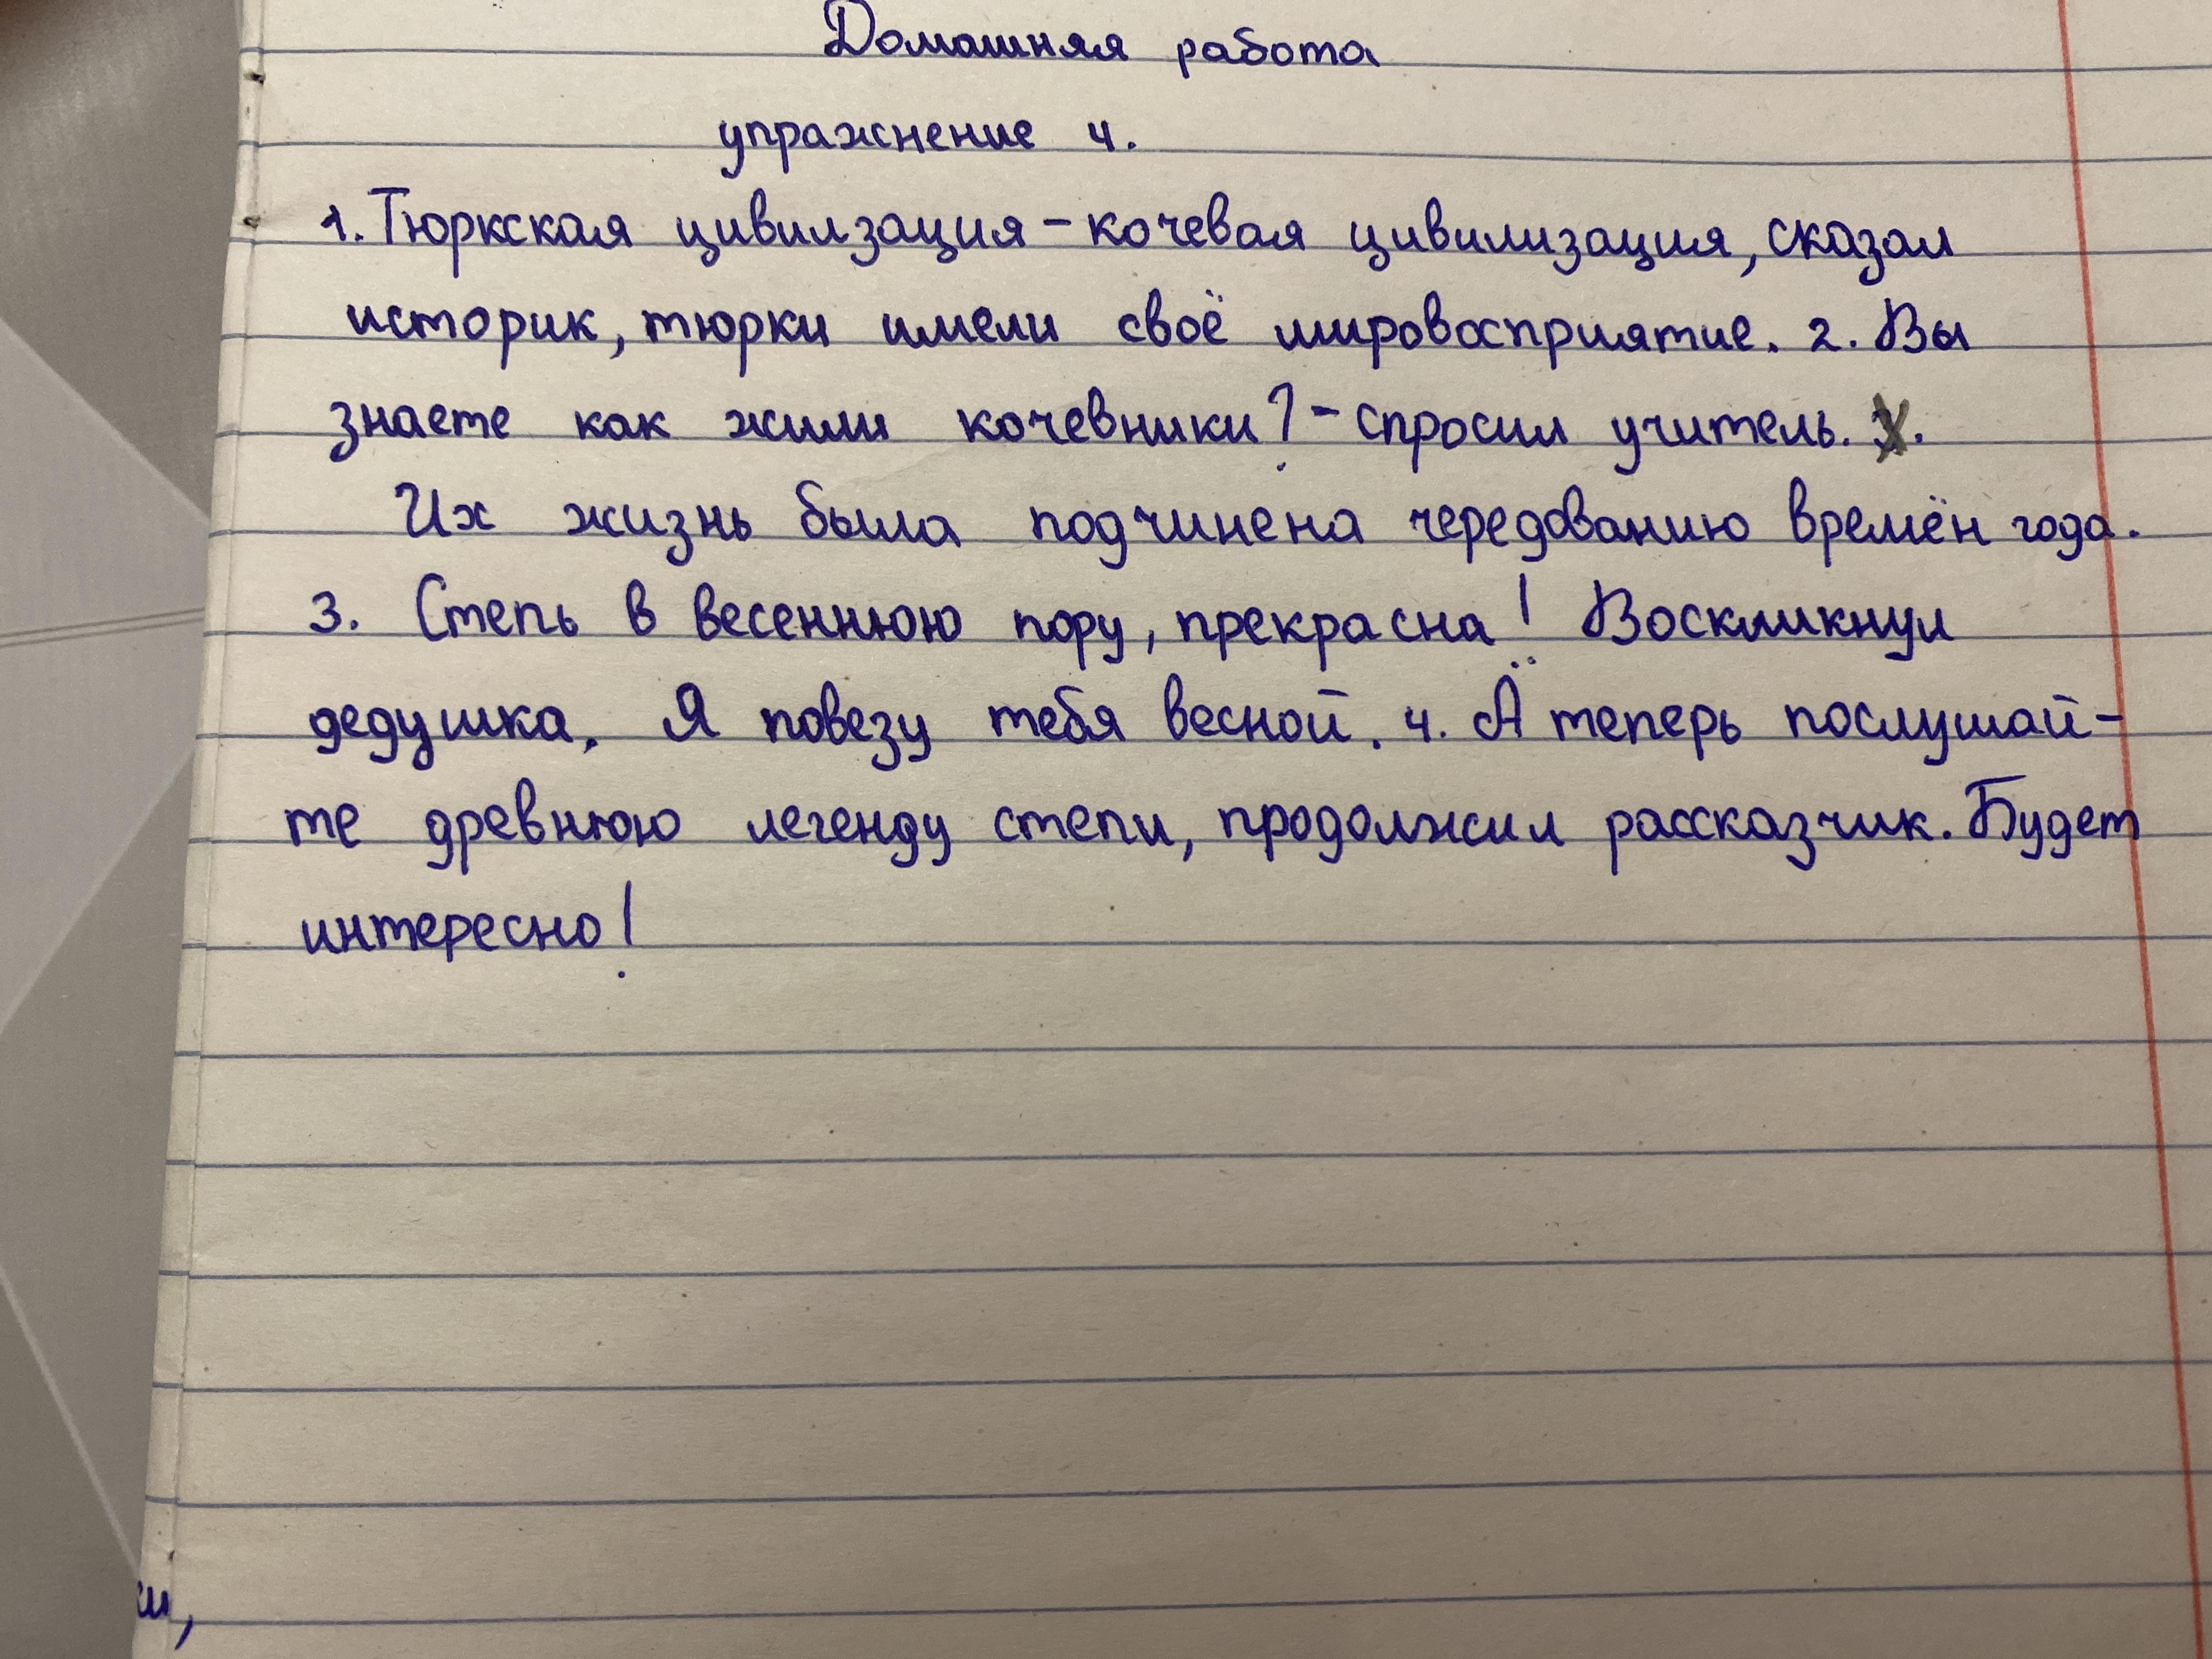 Домашняя работа
упражнение 4.
1. Тюркская цивилзация - кочевая цивилизация, сказал
историк, тюрки имели своё мировосприятие. 2. Вы
знаете как жили кочевники? - спросил учитель.
Их жизнь была подчинена чередованию времён года.
3. Степь в весеннюю пору, прекрасна! Воскликнул
дедушка. Я повезу тебя весной. 4. А теперь послушай-
те древнюю легенду степи, продолжил рассказчик. Будет
интересно!